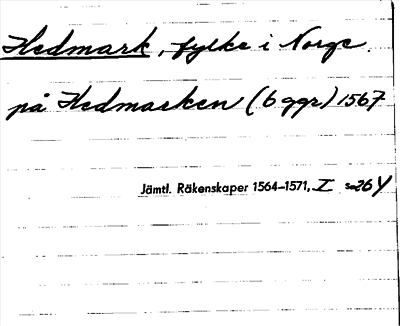 Hedmark, fylke i Norge.
på Hedmarken (6 ggr) 1567
Jämtl. Räkenskaper 1564–1571, I s. 26 Y